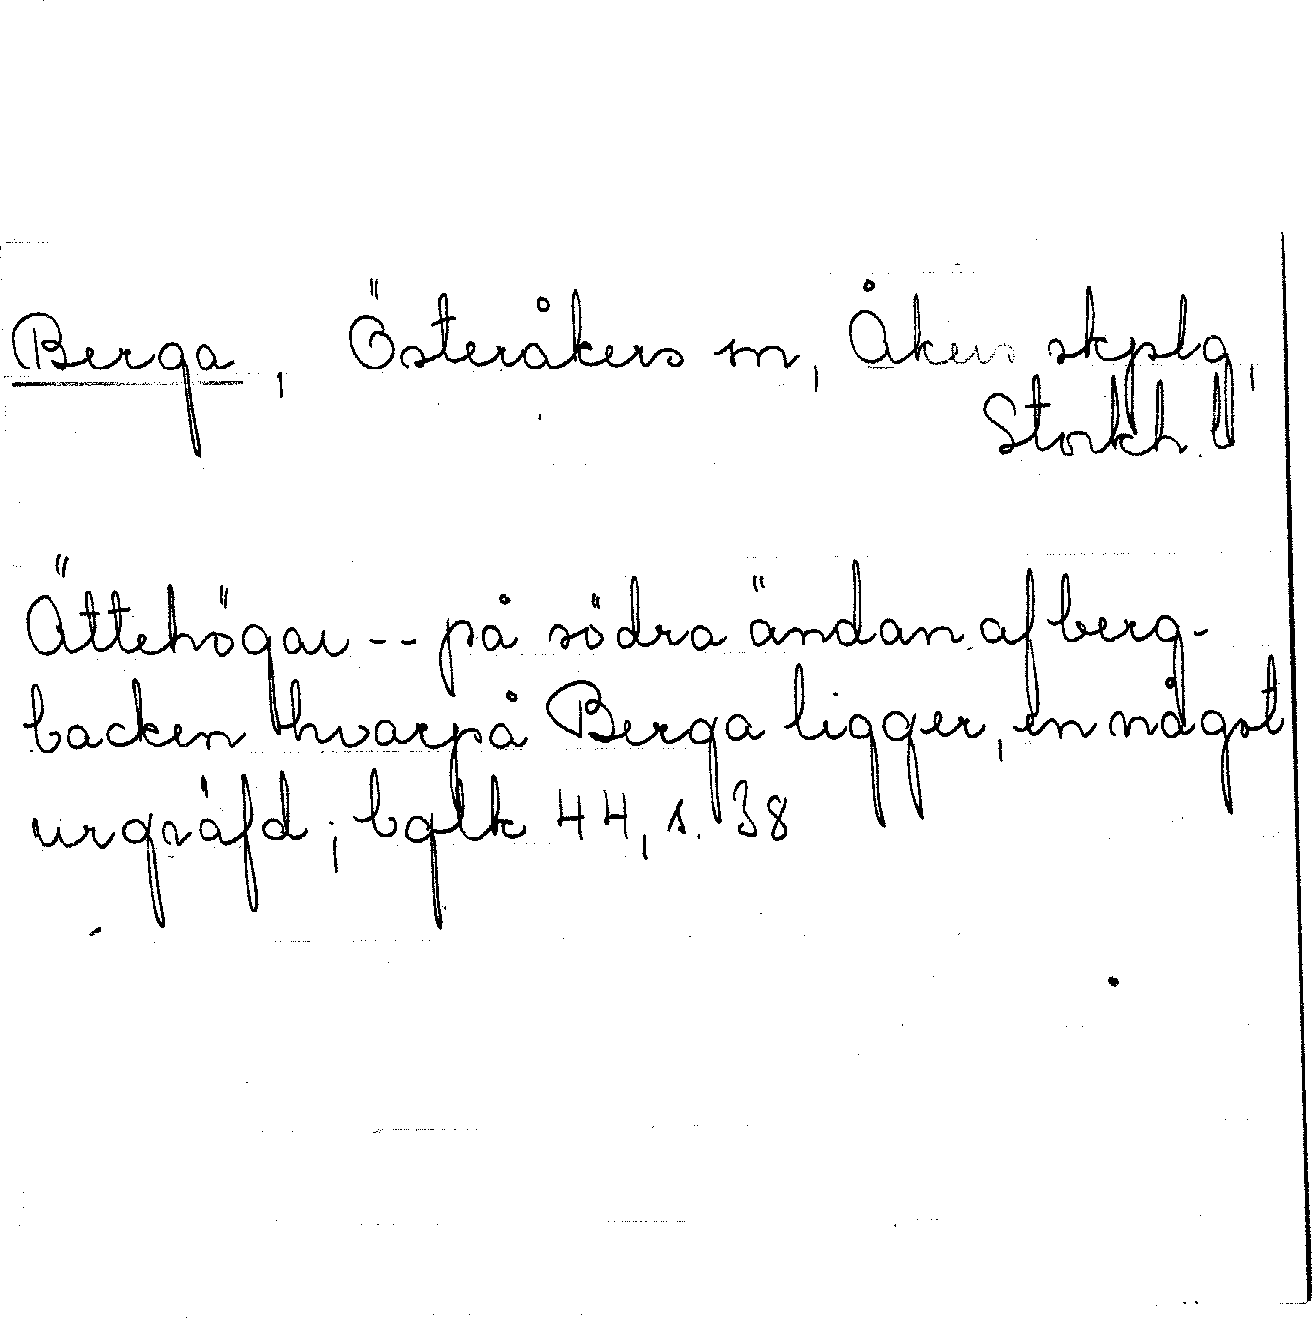 Berga, Österåkers sn, Åkers skplg,
Stockh. l
Ättehögar -- på södra ändan af berg-
backen hvarpå Berga ligger, en något
urgräfd; bglk 44, s. 38